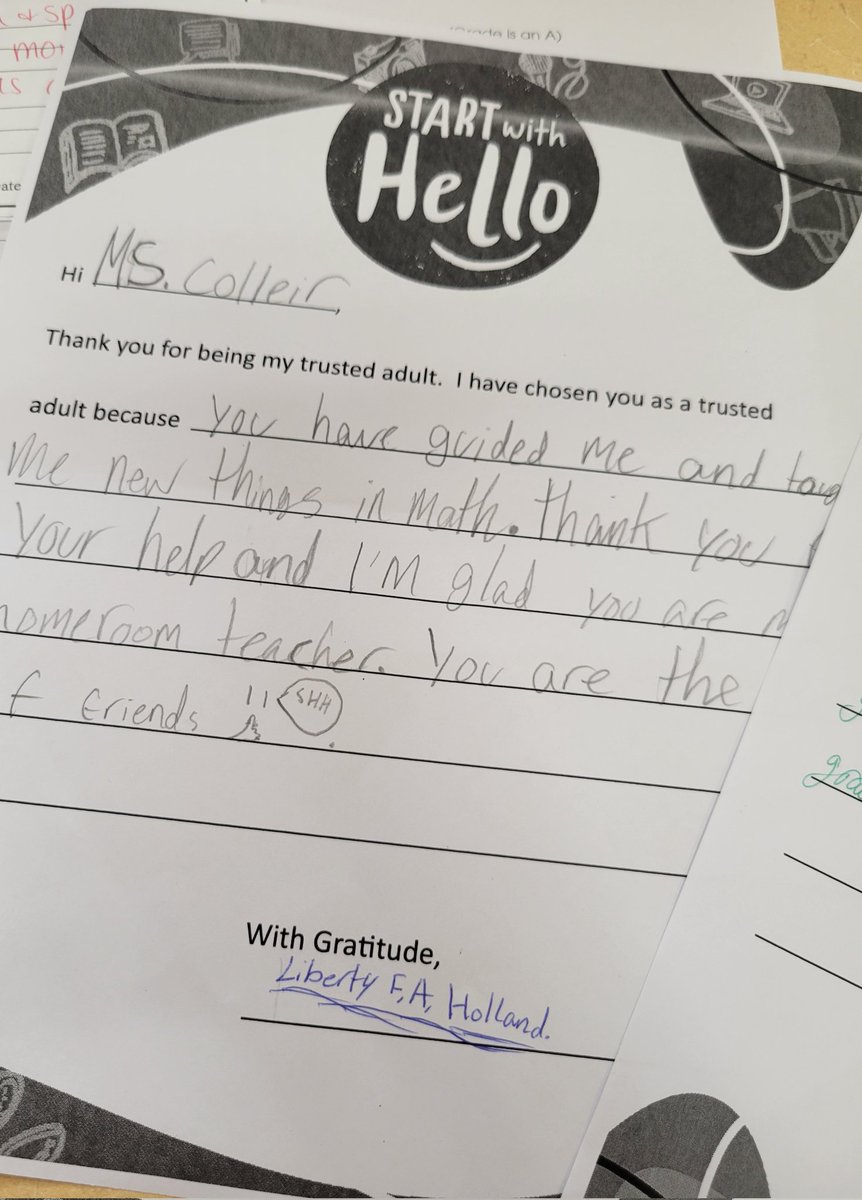 & SP
(Grade is an A)
START with
Hello
Hi MS. Colleir,
Thank you for being my trusted adult. I have chosen you as a trusted
adult because you have guided me and taug
Me new things in Math. Thank you
Your help and I'M glad you are
homeroom teacher. You are the
f friends
SHH
With Gratitude,
Liberty F,A, Holland.